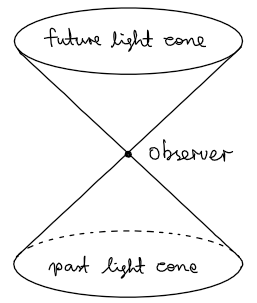 future light cone
observer
past light cone